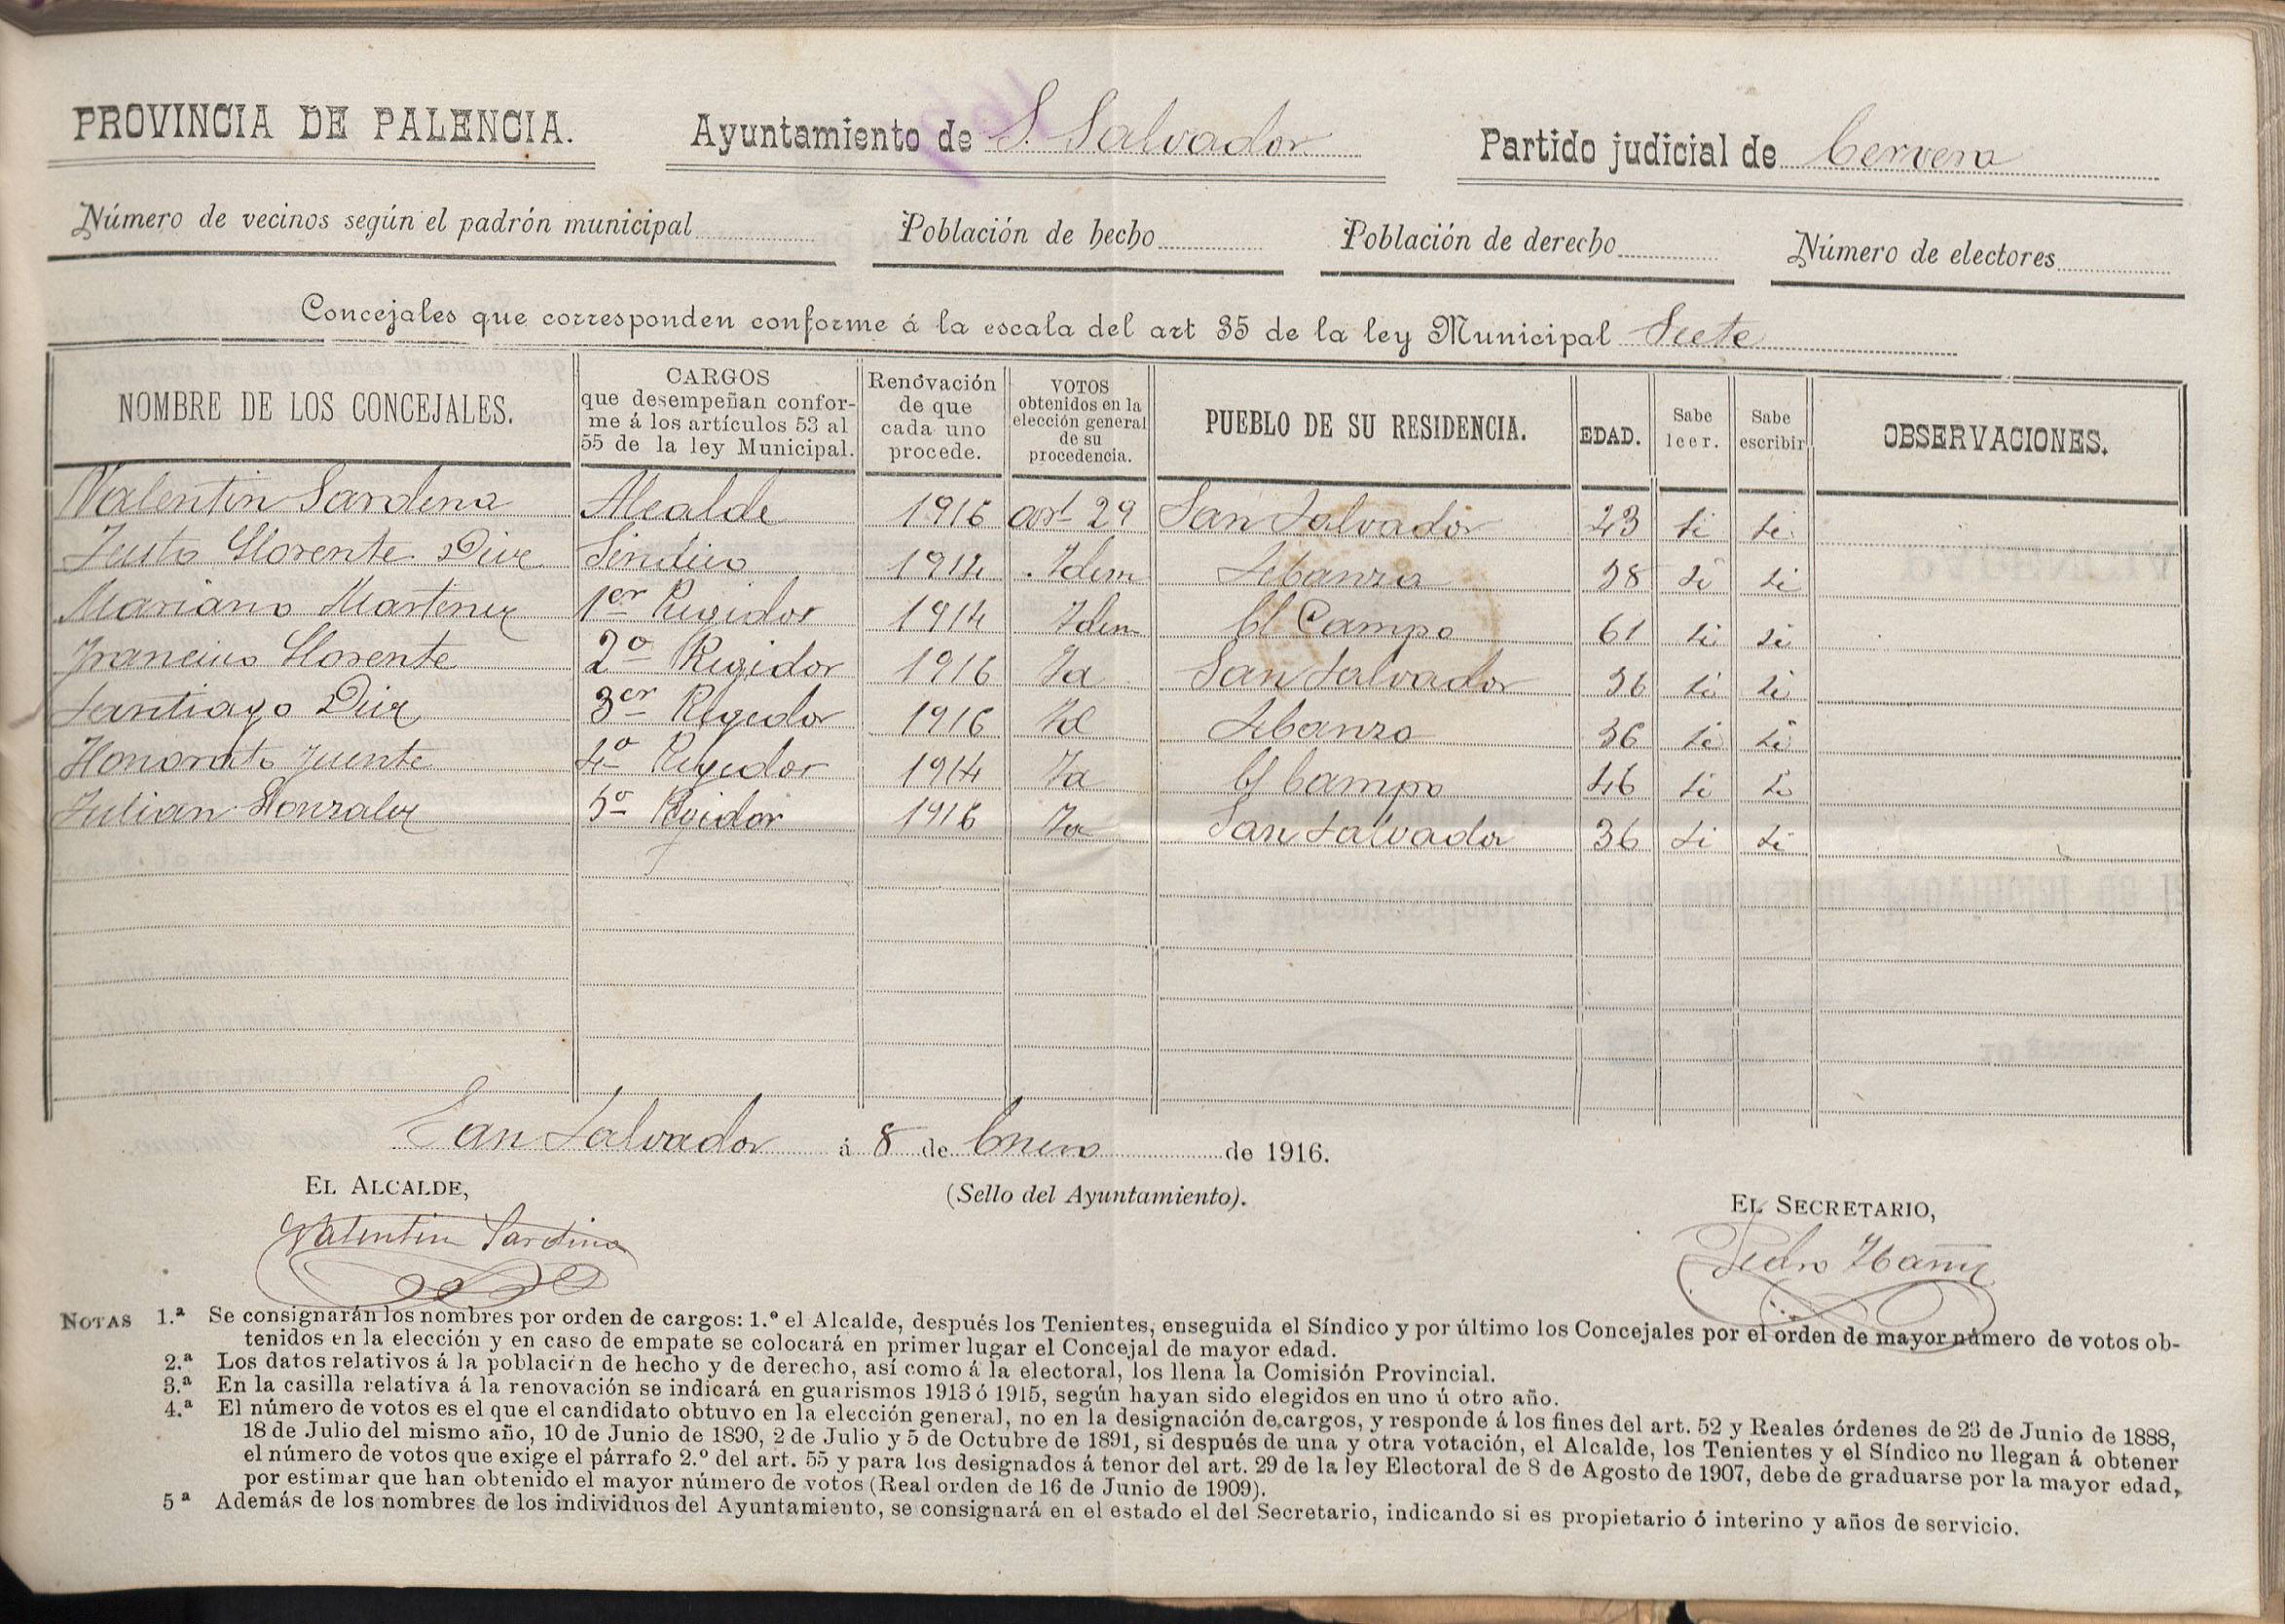 PROVINCIA DE PALENCIA. Ayuntamiento de S. Salvador Partido judicial de Cervera
Número de vecinos según el padrón municipal Población de hecho Población de derecho Número de electores
Concejales que corresponden conforme á la escala del art 35 de la ley Municipal Siete
NOMBRE DE LOS CONCEJALES. CARGOS que desempeñan conforme á los artículos 53 al 55 de la ley Municipal. Renovación de que cada uno procede. VOTOS obtenidos en la elección general de su procedencia. PUEBLO DE SU RESIDENCIA. EDAD. Sabe leer. Sabe escribir OBSERVACIONES.
Valentin Sardina Alcalde 1916 art 29 San Salvador 43 si si
Justo Llorente Diez Sindico 1914 Idem Lebanza 38 si si
Mariano Martinez 1er Regidor 1914 Idem El Campo 61 si si
Francisco Llorente 2º Regidor 1916 Id San Salvador 36 si si
Santiago Diez 3er Regidor 1916 Id Lebanza 36 si si
Honorato Fuente 4º Regidor 1914 Id El Campo 46 si si
Julian Gonzalez 5º Regidor 1916 Id San Salvador 36 si si
San Salvador á 8 de Enero de 1916.
EL ALCALDE, (Sello del Ayuntamiento). EL SECRETARIO,
Valentin Sardina Pedro Ibañez
NOTAS 1.ª Se consignarán los nombres por orden de cargos: 1.º el Alcalde, después los Tenientes, enseguida el Síndico y por último los Concejales por el orden de mayor número de votos ob-
tenidos en la elección y en caso de empate se colocará en primer lugar el Concejal de mayor edad.
2.ª Los datos relativos á la población de hecho y de derecho, así como á la electoral, los llena la Comisión Provincial.
3.ª En la casilla relativa á la renovación se indicará en guarismos 1913 ó 1915, según hayan sido elegidos en uno ú otro año.
4.ª El número de votos es el que el candidato obtuvo en la elección general, no en la designación de cargos, y responde á los fines del art. 52 y Reales órdenes de 23 de Junio de 1888,
18 de Julio del mismo año, 10 de Junio de 1890, 2 de Julio y 5 de Octubre de 1891, si después de una y otra votación, el Alcalde, los Tenientes y el Síndico no llegan á obtener
el número de votos que exige el párrafo 2.º del art. 55 y para los designados á tenor del art. 29 de la ley Electoral de 8 de Agosto de 1907, debe de graduarse por la mayor edad,
por estimar que han obtenido el mayor número de votos (Real orden de 16 de Junio de 1909).
5ª Además de los nombres de los individuos del Ayuntamiento, se consignará en el estado el del Secretario, indicando si es propietario ó interino y años de servicio.